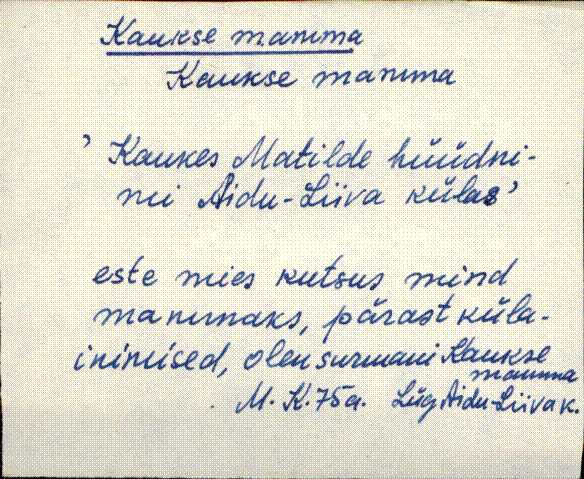 Kaukse mamma
Kaukse mamma
' Kaukes Matilde hüüdni-
mi Aidu-Liiva külas'
este mies kutsus mind
mammaks, pärast küla-
inimised, olen surmani Kaukse
mamma
M. K. 75a. Lüg Aidu-Liiva k.